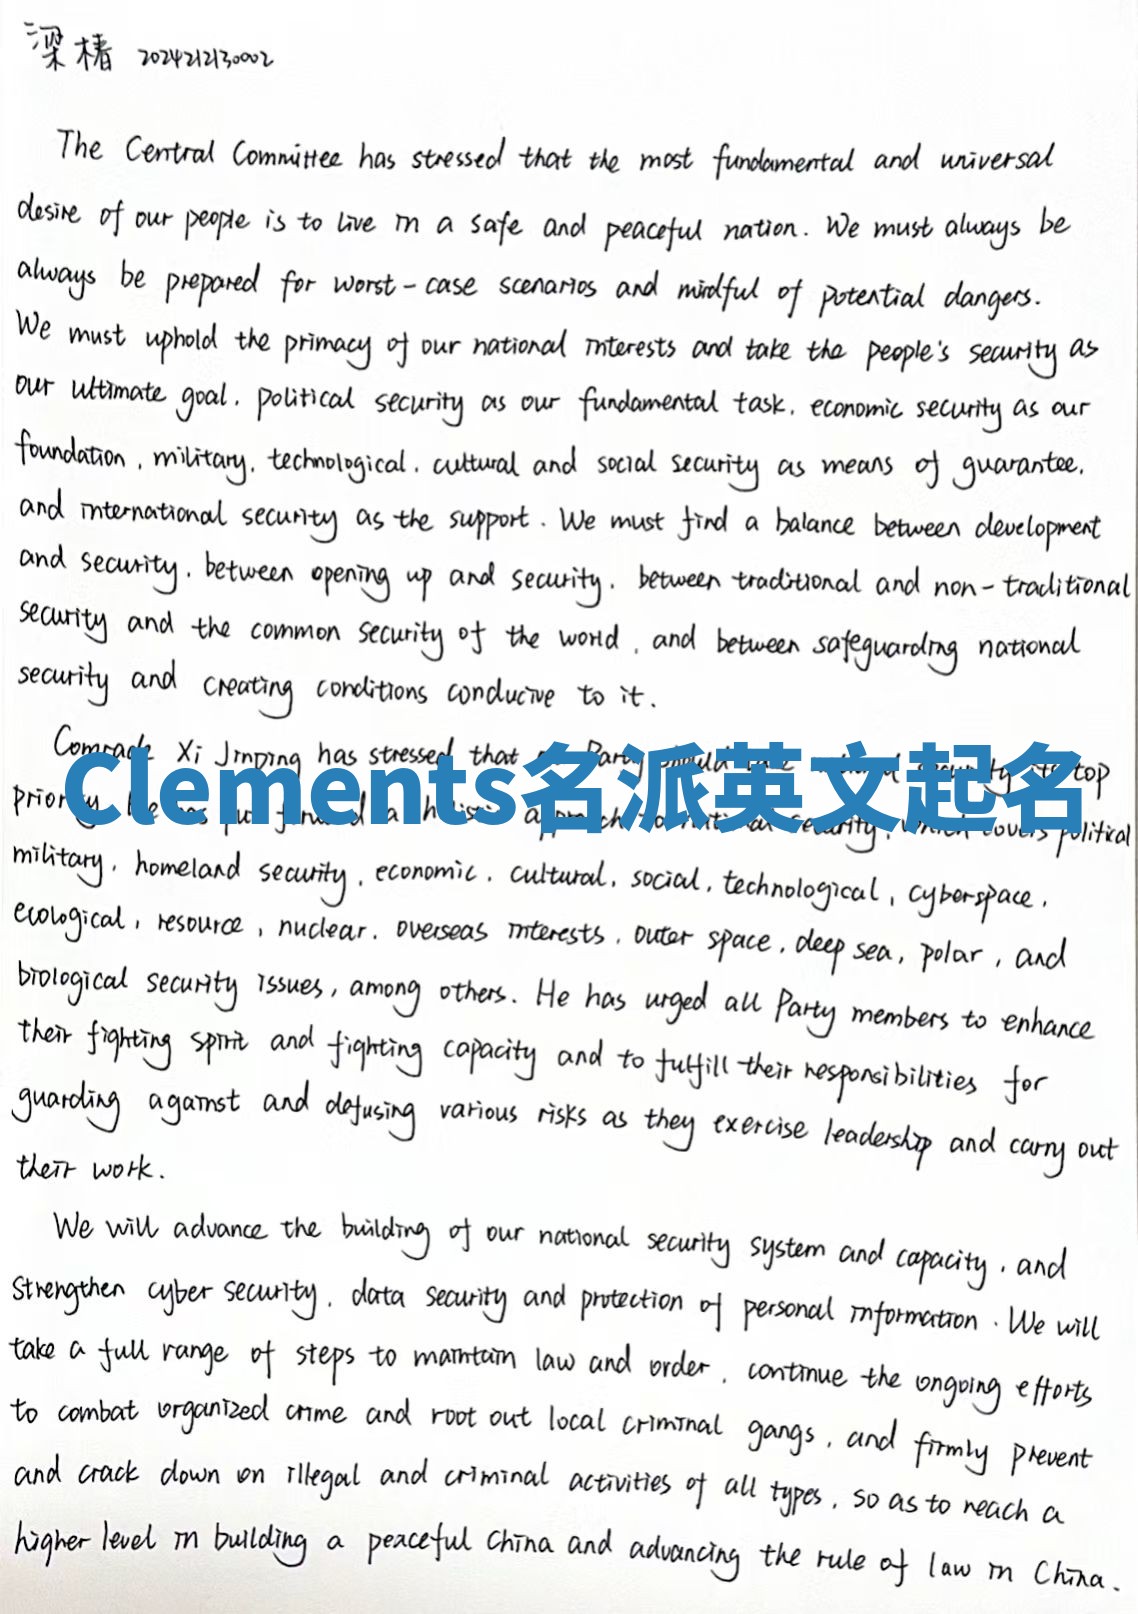 梁椿 2024212130002
The Central Committee has stressed that the most fundamental and universal
desire of our people is to live in a safe and peaceful nation. We must always be
always be prepared for worst-case scenarios and mindful of potential dangers.
We must uphold the primacy of our national interests and take the people's security as
our ultimate goal, political security as our fundamental task, economic security as our
foundation, military, technological, cultural and social security as means of guarantee,
and international security as the support. We must find a balance between development
and security, between opening up and security, between traditional and non-traditional
security and the common security of the world, and between safeguarding national
security and creating conditions conducive to it.
Comrade Xi Jinping has stressed that Party security its top
Clements名派英文起名
priority. He has put forward a holistic approach to national security, which covers political
military, homeland security, economic, cultural, social, technological, cyberspace,
ecological, resource, nuclear, overseas interests, outer space, deep sea, polar, and
biological security issues, among others. He has urged all Party members to enhance
their fighting spirit and fighting capacity and to fulfill their responsibilities for
guarding against and defusing various risks as they exercise leadership and carry out
their work.
We will advance the building of our national security system and capacity, and
strengthen cyber security, data security and protection of personal information. We will
take a full range of steps to maintain law and order, continue the ongoing efforts
to combat organized crime and root out local criminal gangs, and firmly prevent
and crack down on illegal and criminal activities of all types, so as to reach a
higher level in building a peaceful China and advancing the rule of law in China.